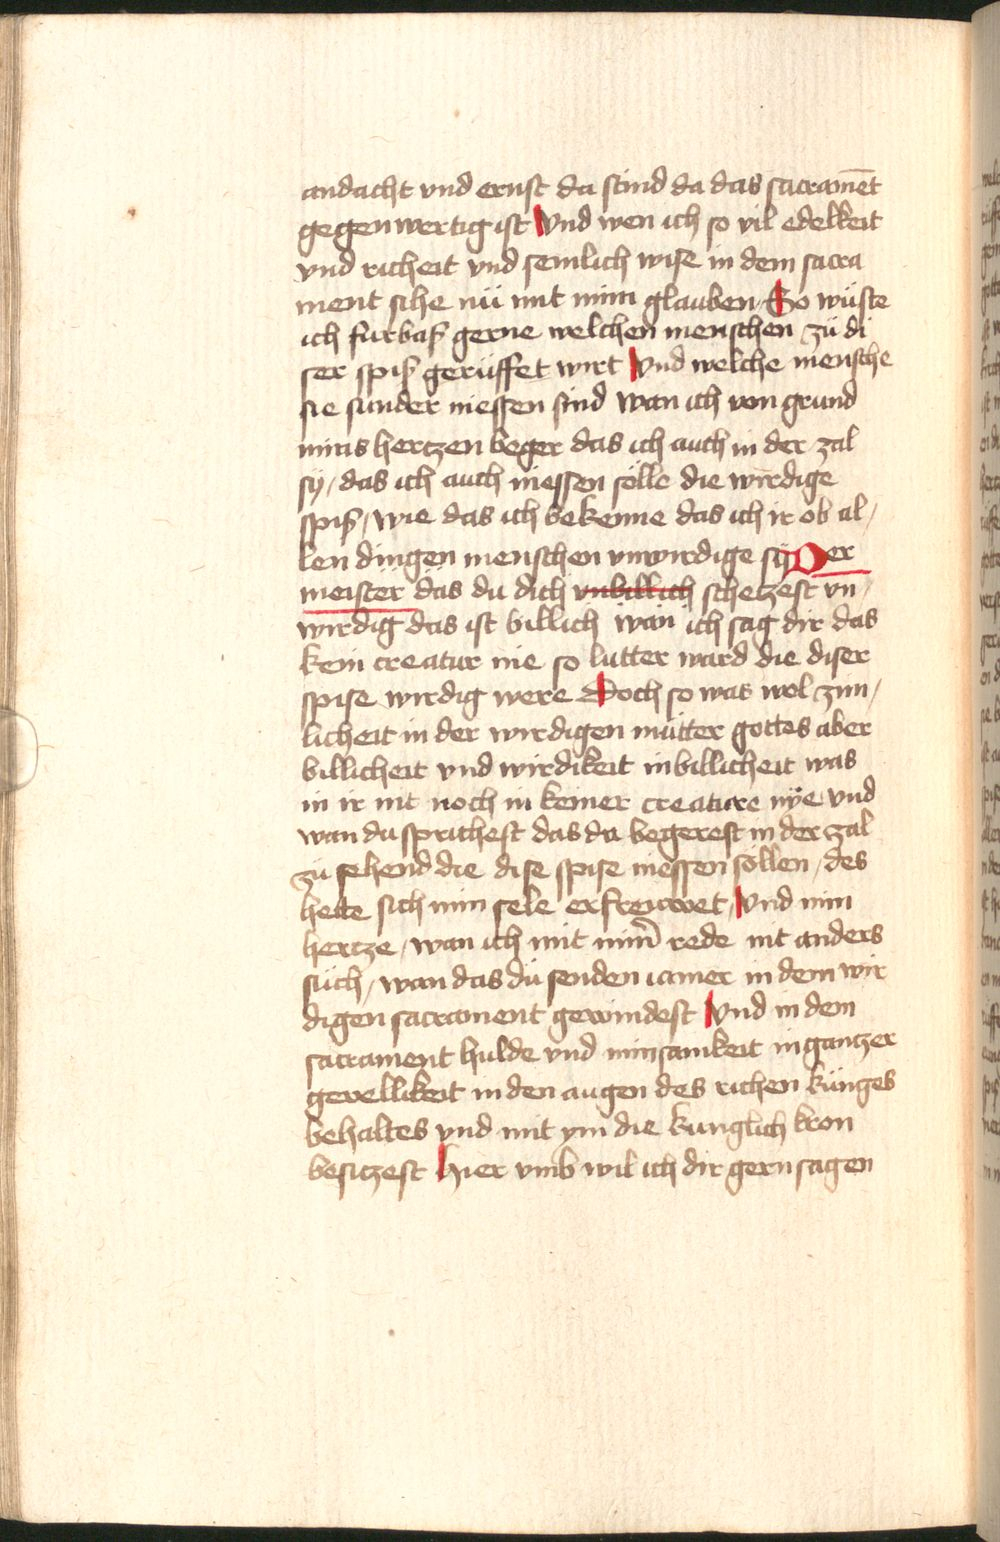 andacht vnd ernst da sind da das sacramēt
gegenwertig ist Vnd wen ich so vil edelkeit
vnd richeit vnd semlich wise in dem sacra
ment sihe nü mit mim glauben So wüste
ich furbaß gerne welchen menschen zü di
ser spiß gerüffet wirt Vnd welche mensche
sie sunder niessen sind wan ich von grund
mins hertzen beger das ich auch in der zal
sÿ / das ich auch niessen sölle die wirdige
spiß / wie das ich bekenne das ich ir ob al /
len dingen menschen vnwirdige sÿ Der
meister das du dich vnbillich schetzest vn /
wirdig das ist billich wan ich sag dir das
kein creatur nie so lutter ward die diser
spise wirdig were Doch so was wol zim /
licheit in der wirdigen mütter gottes aber
billicheit vnd wirdikeit inbillicheit was
in ir nit noch in keiner creature nÿe vnd
wan du sprichest das du begerest in der zal
zü sehend die dise spise niessen söllen / des
hette sich min sele erfreüwet / Vnd min
hertze / wan ich mit mim̄ rede nit anders
süch / wan das du senden iamer in dem wir
digen sacrament gewindest Vnd in dem
sacrament hulde vnd minsamkeit in gantzer
gevellikeit in den augen des richen künges
behaltes vnd mit ym die kunglich kron
besitzest Hier vmb wil ich dir gern sagen